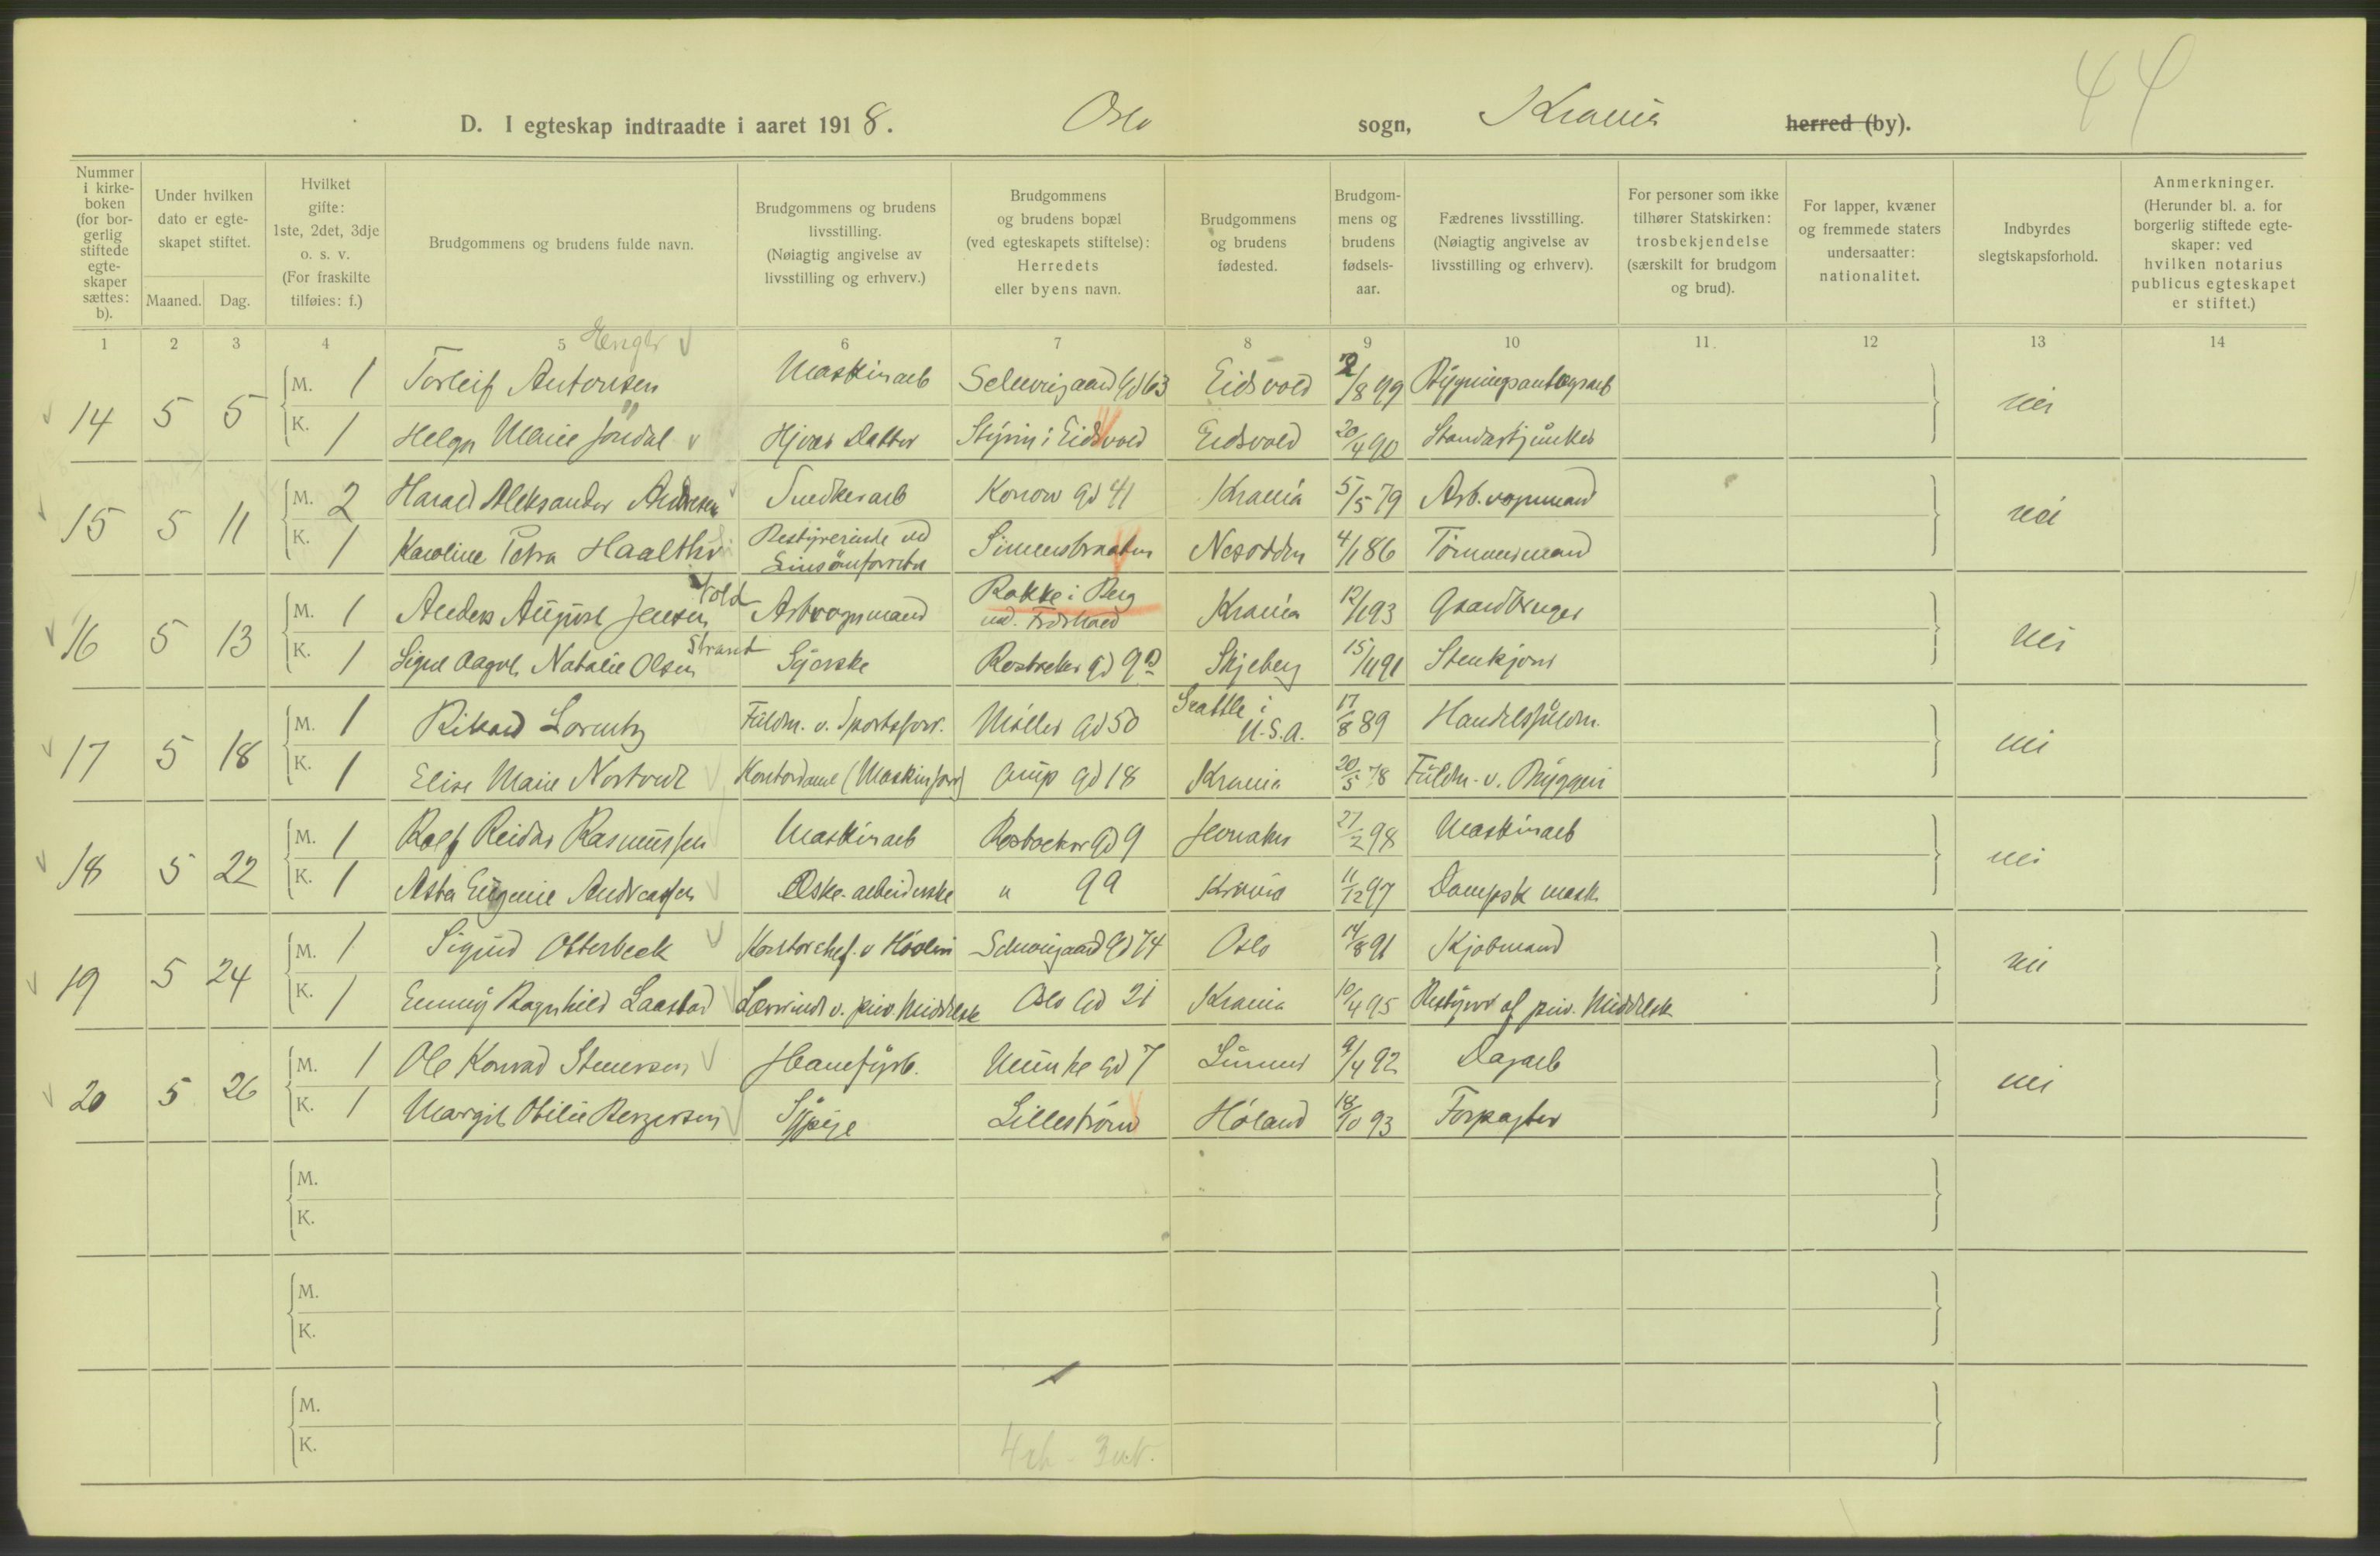 44
D. I egteskap indtraadte i aaret 1918. Oslo sogn, Krania herred (by).
Nummer i kirke- boken (for bor- gerlig stiftede egte- skaper sættes: b).
Under hvilken dato er egte- skapet stiftet.
Maaned. Dag.
Hvilket gifte: 1ste, 2det, 3dje o. s. v. (For fraskilte tilføies: f.)
Brudgommens og brudens fulde navn.
Brudgommens og brudens livsstilling. (Nøiagtig angivelse av livsstilling og erhverv.)
Brudgommens og brudens bopæl (ved egteskapets stiftelse): Herredets eller byens navn.
Brudgommens og brudens fødested.
Brudgom- mens og brudens fødsels- aar.
Fædrenes livsstilling. (Nøiagtig angivelse av livsstilling og erhverv).
For personer som ikke tilhører Statskirken: trosbekjendelse (særskilt for brudgom og brud).
For lapper, kvæner og fremmede staters undersaatter: nationalitet.
Indbyrdes slegtskapsforhold.
Anmerkninger. (Herunder bl. a. for borgerlig stiftede egte- skaper: ved hvilken notarius publicus egteskapet er stiftet.)
1 2 3 4 5 6 7 8 9 10 11. 12 13 14
14 5 5 M. 1 Torleif Antonsen Maskinarb Schweigaard Gd 63 Eidsvold /8 99 nei
K. 1 Helga Marie Jøndal Hjvær Datter Styrin i Eidsvold Eidsvold 20/4 90
15 5 11 M. 2 Harald Aleksander Andresen Snedkerarb Konow Gd 41 Krania 5/5 79 Arb. vognmand nei
K. 1 Karoline Petra Haalthi Bestyrerinde ved Simensbraaten Nesodden 4/1 86 Tømmermand
16 5 13 M. 1 Anders August Jensen Vold Arb vognmand Rakke i Berg ved Frdshald Krania 12/1 93 Gaardbruger nei
K. 1 Signe Aagot Natalie Olsen Strand Syerske Rosteds Gd 9 Skjeberg 15/11 91 Stenkjører
17 5 18 M. 1 Rikard Lorentz Fuldm. v. Sportsforr. Møller Gd 50 Seattle i U.S.A. 17/8 89 Handelsfuldm. nei
K. 1 Elise Marie Nortvedt Kontordame (Maskinforr) Arup Gd 18 Krania 20/5 78 Fuldm. v. Bryggeri
18 5 22 M. 1 Rolf Reidar Rasmussen Maskinarb Gd 9 Jevnaker 27/2 98 Maskinarb nei
K. 1 Asta Eugenie Andreassen Æske-arbeiderske " 99 Krania 11/12 97 Dampsk mask
19 5 24 M. 1 Sigurd Otterbeck Kontorchef v Høvleri Schweigaard Gd 74 Oslo 14/8 91 Kjøbmand nei
K. 1 Emmy Ragnhild Laastad Lærerinde v. priv. Middelsk Oslo Gd 21 Krania 10/4 95 Bestyrer af priv. Middelsk
20 5 26 M. 1 Ole Konrad Stenersen Kanefyrb. Munke Gd 7 Lunner 9/4 92 Dagarb nei
K. 1 Margit Otilie Bergersen Sypige Lillestrøm Høland 18/10 93 Forpagter
M.
K.
M.
K.
M.
K.